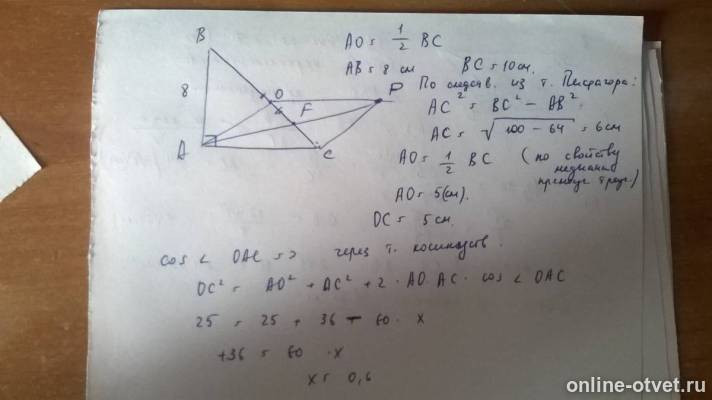 B
AO = 1/2 BC
AB = 8 см BC = 10 см.
8
O
F
P
A
C
По следств. из т. Пифагора:
AC² = BC² - AB².
AC = √100 - 64 = 6 см
AO = 1/2 BC (по свойству
медианы
прямоуг. треуг.)
AO = 5 (см).
OC = 5 см.
cos < OAC => через т. косинусов.
OC² = AO² + AC² + 2 · AO · AC · cos < OAC
25 = 25 + 36 - 60 · x
+36 = 60 · x
x = 0,6
online-otvet.ru